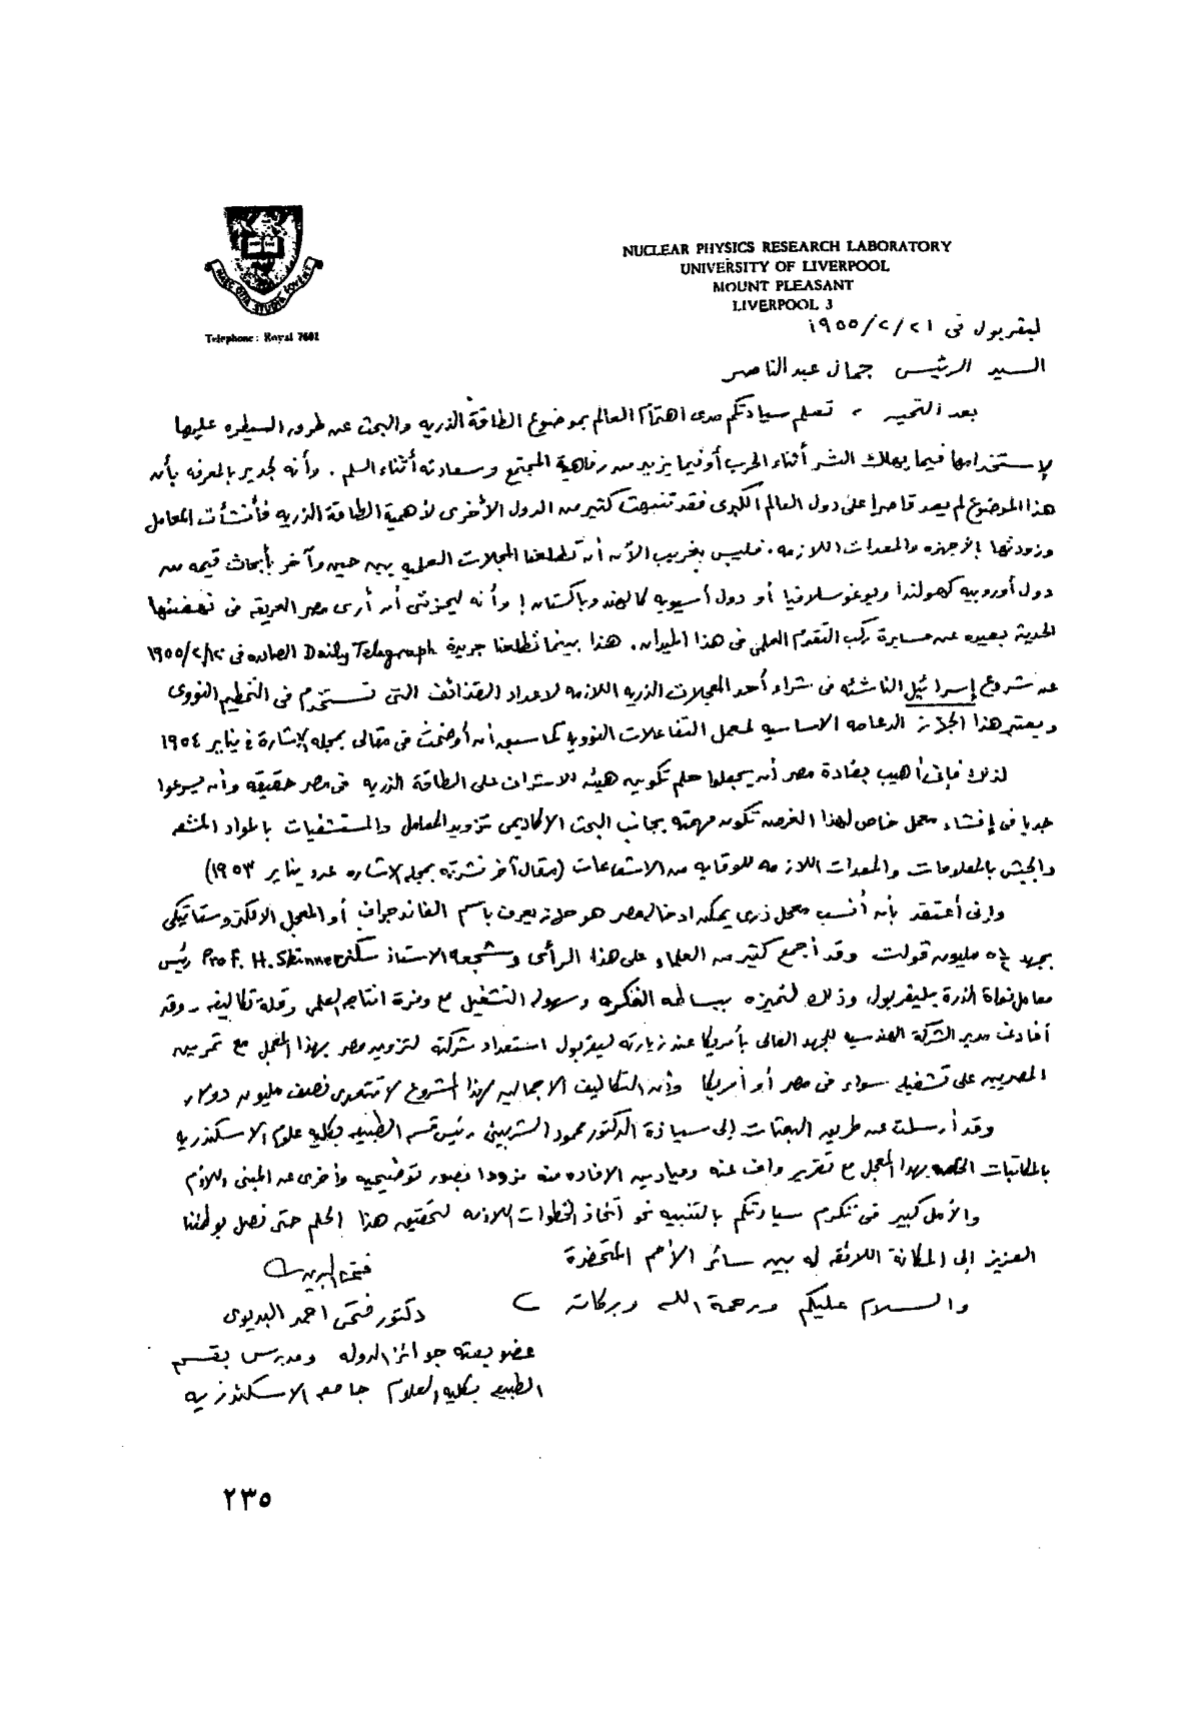 HAEC OTIA STUDIA FOVENT
Telephone: Royal 7601
NUCLEAR PHYSICS RESEARCH LABORATORY
UNIVERSITY OF LIVERPOOL
MOUNT PLEASANT
LIVERPOOL 3
ليفربول فى ٢١/٢/١٩٥٥
السيد الرئيس جمال عبد الناصر
بعد التحية ، تعلم سيادتكم مدى اهتمام العالم بموضوع الطاقة الذريه والبحث عن طرق السيطره عليها
لاستخدامها فيما يهلك البشر أثناء الحرب أو فيما يزيد من رفاهية المجتمع وسعادته أثناء السلم . وأنه لجدير بالمعرفه بأن
هذا الموضوع لم يعد قاصرا على دول العالم الكبرى فقد تنبهت كثير من الدول الأخرى لأهمية الطاقة الذريه فأنشأت المعامل
وزودتها بالأجهزه والمعدات اللازمه . فليس بغريب الآن أن تطلعنا المجلات العلميه بين حين وآخر بأبحاث قيمه من
دول أوروبيه كهولندا ويوغوسلافيا أو دول أسيويه كالهند وباكستان ! وأنه ليحزننى أن أرى مصر العريقه فى نهضتها
الحديثة بعيده عن مسايرة ركب التقدم العلمى فى هذا الميدان . هذا بينما تطلعنا جريدة Daily Telegraph الصادره فى ٢/١٢/١٩٥٥
عن شروع إسرائيل الناشئه فى شراء أحد المعجلات الذريه اللازمه لاعداد القذائف التى تستخدم فى التحطيم النووى
ويعتبر هذا الجهاز الدعامه الاساسيه لمعمل التفاعلات النوويه كما سبق أن أوضحت فى مقالى بمجلة الإشارة فى يناير ١٩٥٤
لذلك فإنى أهيب بقادة مصر أن يجعلوا حلم تكوين هيئه للاشراف على الطاقة الذريه فى مصر حقيقه وأن يسرعوا
جديا فى إنشاء معمل خاص لهذا الغرض تكون مهمته بجانب البحث الاكاديمى تزويد المعامل والمستشفيات بالمواد المشعه
والجيش بالمعلومات والمعدات اللازمه للوقايه من الاشعاعات (مقال آخر نشرته بمجلة الاشاره عدد يناير ١٩٥٣)
وإنى أعتقد بأن أنسب معجل ذرى يمكن ادخاله مصر هو جهاز يعرف باسم الفاندجراف أو المعجل الالكتروستاتيكى
بجهد ½٥ مليون ڤولت وقد أجمع كثير من العلماء على هذا الرأى وشجعه الاستاذ سكنر Prof. H. Skinner رئيس
معامل نواة الذرة بليفربول وذلك لتميزه ببساطه الفكره وسهوله التشغيل مع وفرة انتاجه العلمى وقلة تكاليفه . وقد
أفادنى مدير الشركة الهندسيه للجهد العالى بأمريكا عند زيارته ليفربول استعداد شركته لتزويد مصر بهذا المعجل مع تمرين
المصريين على تشغيله سواء فى مصر أو أمريكا وأن التكاليف الاجماليه لهذا المشروع لا تتعدى نصف مليون دولار
وقد أرسلت عن طريق البعثات إلى سيادة الدكتور محمود الشربينى رئيس قسم الطبيعه بكليه علوم الاسكندريه
بالمكاتبات الخاصه بهذا المعجل مع تقرير واف عنه وميادين الافاده منه مزودا بصور توضيحيه وأخرى عن المبنى اللازم
والأمل كبير فى تكرم سيادتكم بالتنبيه نحو اتخاذ الخطوات اللازمه لتحقيق هذا الحلم حتى نصل بوطننا
العزيز إلى المكانة اللائقه له بين سائر الأمم المتحضرة
والسلام عليكم ورحمة الله وبركاته
فتحى البديوى
دكتور فتحى احمد البديوى
عضو بعثه جوائز الدوله ومدرس بقسم
الطبيعه بكليه العلوم جامعه الاسكندريه
٢٣٥